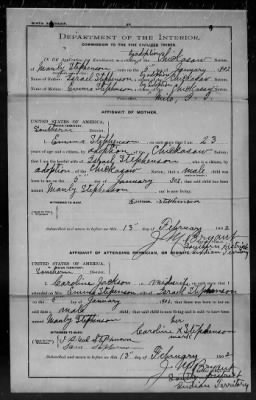 BIRTH AFFIDAVIT.
DEPARTMENT OF THE INTERIOR,
COMMISSION TO THE FIVE CIVILIZED TRIBES.
IN RE Application for Enrollment, as a citizen of the Chickasaw Nation,
of Manly Stephenson, born on the 5 day of January, 1902
Name of Father: Israel Stephenson, a citizen of the Chickasaw Nation.
Name of Mother: Emma Stephenson, a citizen of the Chickasaw Nation.
AFFIDAVIT OF MOTHER.
UNITED STATES OF AMERICA,
Southern District.
I, Emma Stephenson, on oath state that I am 23
years of age and a citizen, by adoption, of the Chickasaw Nation;
that I am the lawful wife of Israel Stephenson, who is a citizen, by
adoption, of the Chickasaw Nation; that a male child
was born to me on 5 day of January, 1902, that said child has been
named Manly Stephenson, and is now living.
Emma Stephenson
WITNESSES TO MARK:
Subscribed and sworn to before me this 13 day of February, 1902
AFFIDAVIT OF ATTENDING PHYSICIAN, OR MIDWIFE.
UNITED STATES OF AMERICA,
Southern District.
I, Caroline Jackson, a midwife, on oath state that I
attended on Mrs. Emma Stephenson, wife of Israel Stephenson
on the 5 day of January, 1902, that there was born to her on said
date a male child; that said child is now living and is said to have been
named Manly Stephenson
her
Caroline X Stephenson
mark
WITNESSES TO MARK:
Subscribed and sworn to before me this 13 day of February, 1902
Indian Territory